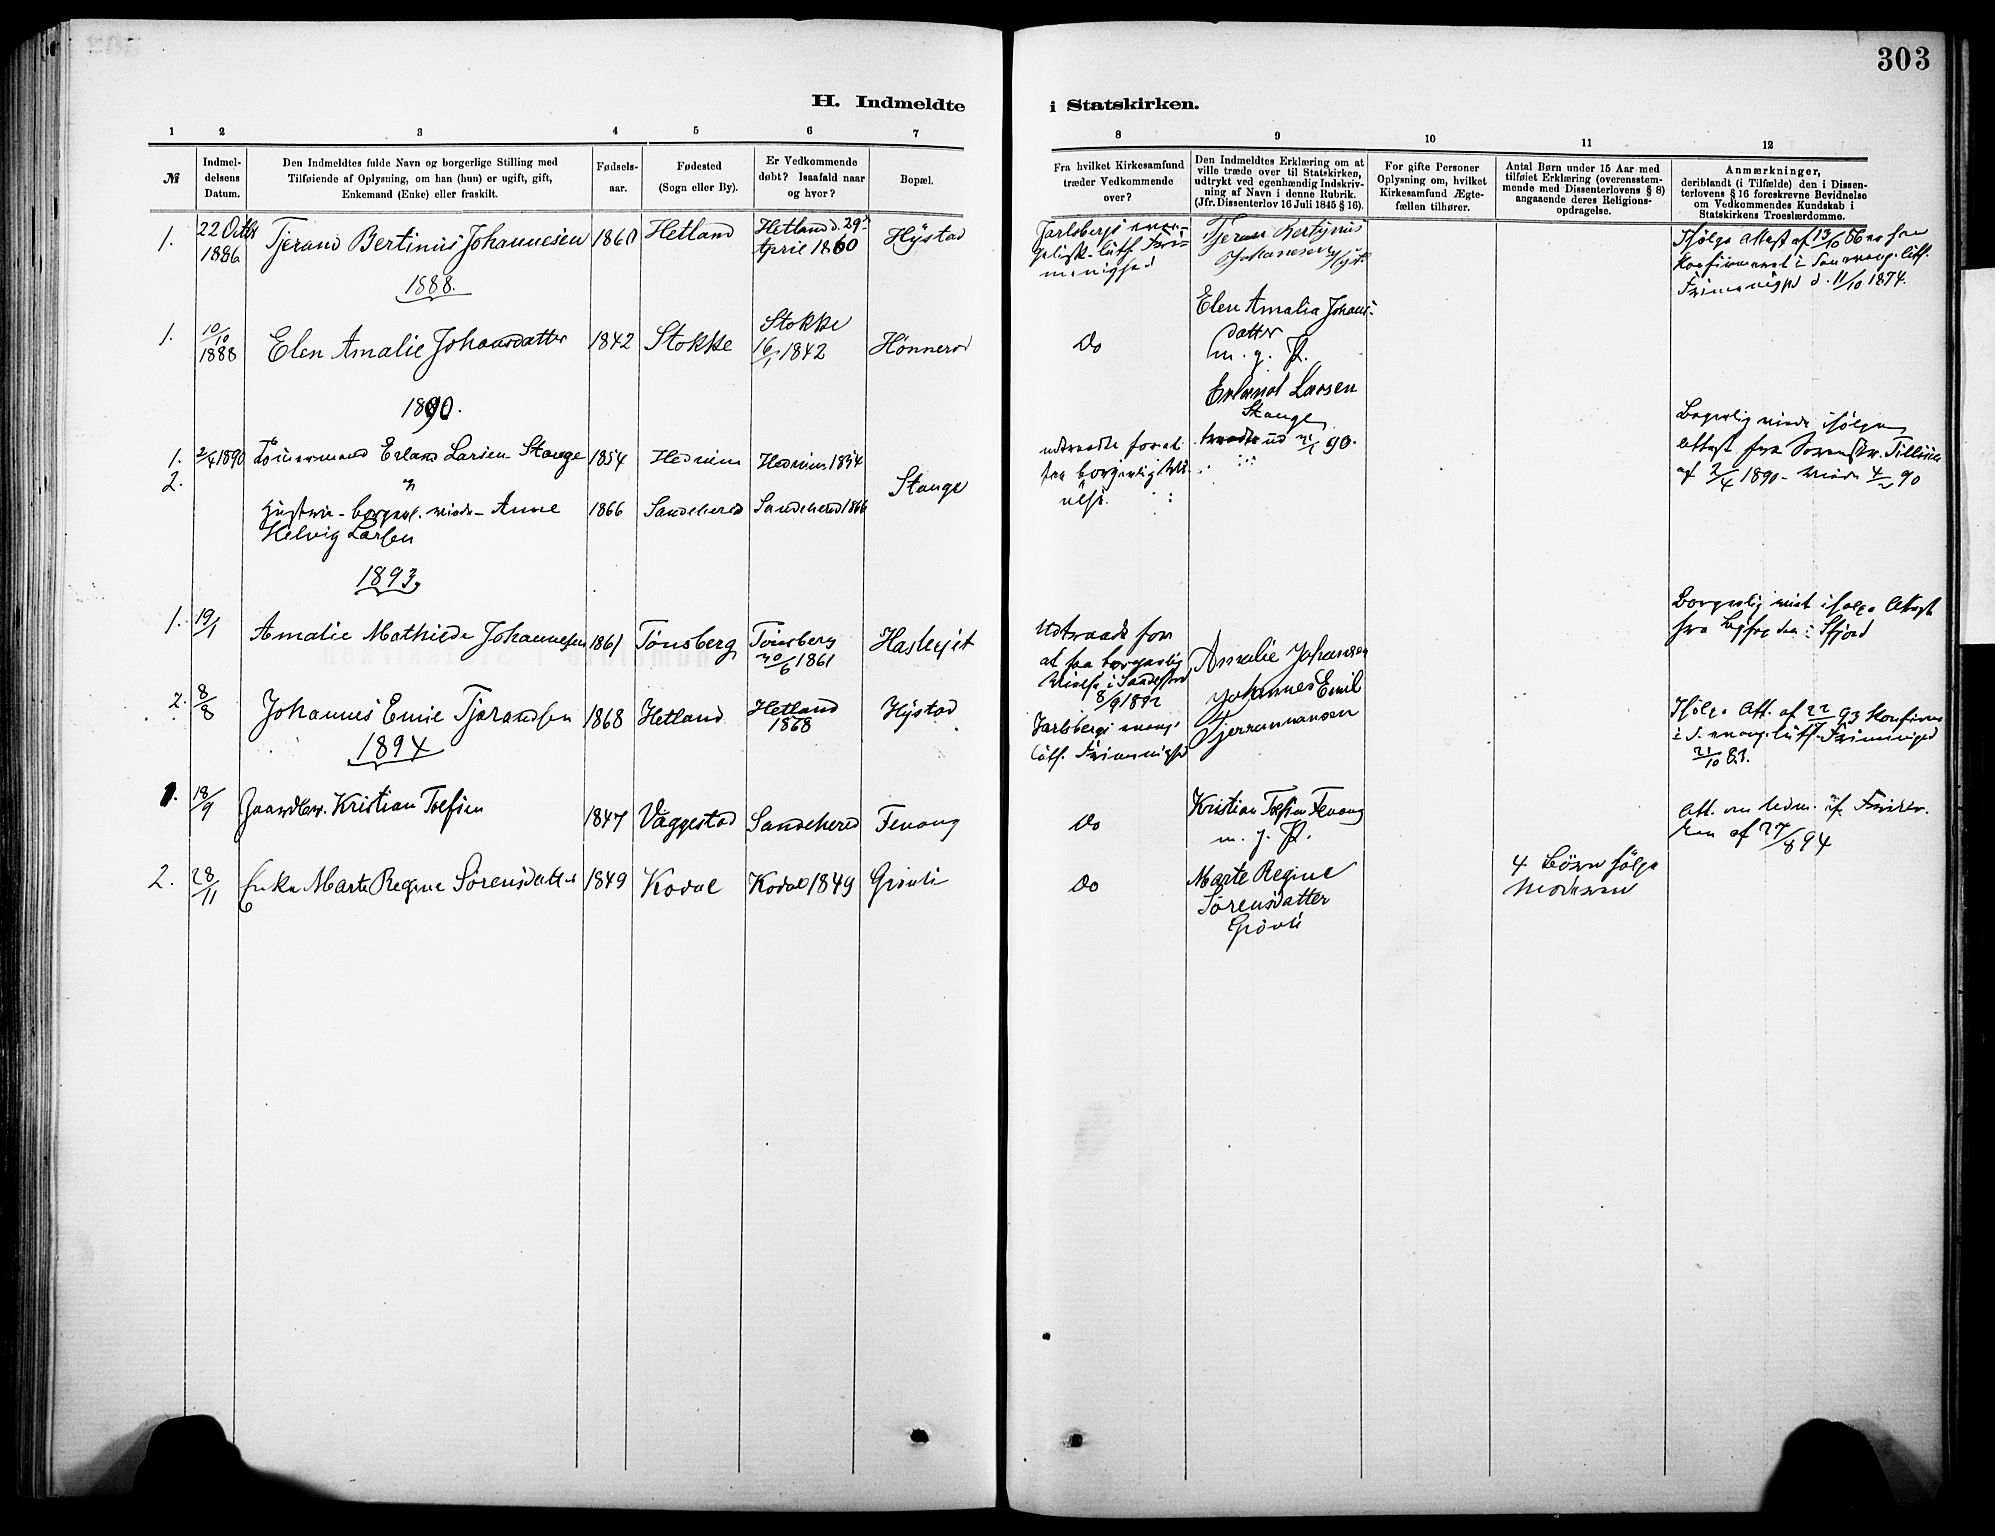 303
H. Indmeldte i Statskirken.
1 2 3 4 5 6 7 8 9 10 11 12
№
Indmel-
delsens
Datum.
Den Indmeldtes fulde Navn og borgerlige Stilling med
Tilføiende af Oplysning, om han (hun) er ugift, gift,
Enkemand (Enke) eller fraskilt.
Fødsels-
aar.
Fødested
(Sogn eller By).
Er Vedkommende
døbt? Isaafald naar
og hvor?
Bopæl.
Fra hvilket Kirkesamfund
træder Vedkommende
over?
Den Indmeldtes Erklæring om at
ville træde over til Statskirken,
udtrykt ved egenhændig Indskriv-
ning af Navn i denne Rubrik.
(Jfr. Dissenterlov 16 Juli 1845 § 16).
For gifte Personer
Oplysning om, hvilket
Kirkesamfund Ægte-
fællen tilhører.
Antal Børn under 15 Aar med
tilføiet Erklæring (overensstem-
mende med Dissenterlovens § 8)
angaaende deres Religions-
opdragelse.
Anmærkninger,
deriblandt (i Tilfælde) den i Dissen-
terlovens § 16 foreskrevne Bevidnelse
om Vedkommendes Kundskab i
Statskirkens Troeslærdomme.
1. 22 Octbr 1886 Tjerand Bertinus Johannesen 1860 Hetland Hetland d. 29de April 1860 Hystad
Jarlsbergs evan-
gelisk-luth. Fri-
menighed
Tjeran Bertinus
Johanesen
Ifølge Attest af 13/10 86 er han
Konfirmeret i den evang. luth.
Frimenighed d. 11/10 1874.
1888.
1. 10/10 1888 Elen Amalie Johansdatter 1842 Stokke Stokke 16/1 1842 Hønnerød
Do
Elen Amalia Johans-
datter
m. g. P.
1890.
1. 2/4 1890 Tømermand Erland Larsen Stange 1854 Hedrum Hedrum 1854
Stange
udtraadte for at
faa borgerlig Vi-
else.
Erland Larsen
Stange
Borgerlig viede ifølge
Attest fra
af 2/4 1890
2. Hustru - borgerl. viede - Anne
Helvig Larsen
1866 Sandeherred Sandeherred 1866
1893.
1. 19/1 Amalie Mathilde Johannesen 1861 Tønsberg Tønsberg 30/6 1861
Udtraadt for
at faa borgerlig
Vielse i Sandefjord
8/9 1892
Amalie Johansen
Borgerlig viet ifølge Attest
fra
2. 8/8 Johannes Emil Tjerandsen 1868 Hetland Hetland 1868 Hystad
Jarlsbergs evang.
luth. Frimenighed
Johannes Emil
Ifølge Att. af 22/7 93 Konfirm.
i J. evang. luth. Frimenighed
21/10 83.
1894
1. 18/9 Gaardbr. Kristian Tolfsen 1847 Vaggestad Sandeherred Fevang
Do
Kristian Tolfsen Fevang
m. g. P.
Att. om Udm. af Frikir-
ken af 27/8 94
2. 28/11 Enke Marte Regine Sørensdatter 1849 Kodal Kodal 1849 Grøvli
Do
Marte Regine
Sørensdatter
Grøvli
4 Børn følge
Moderen